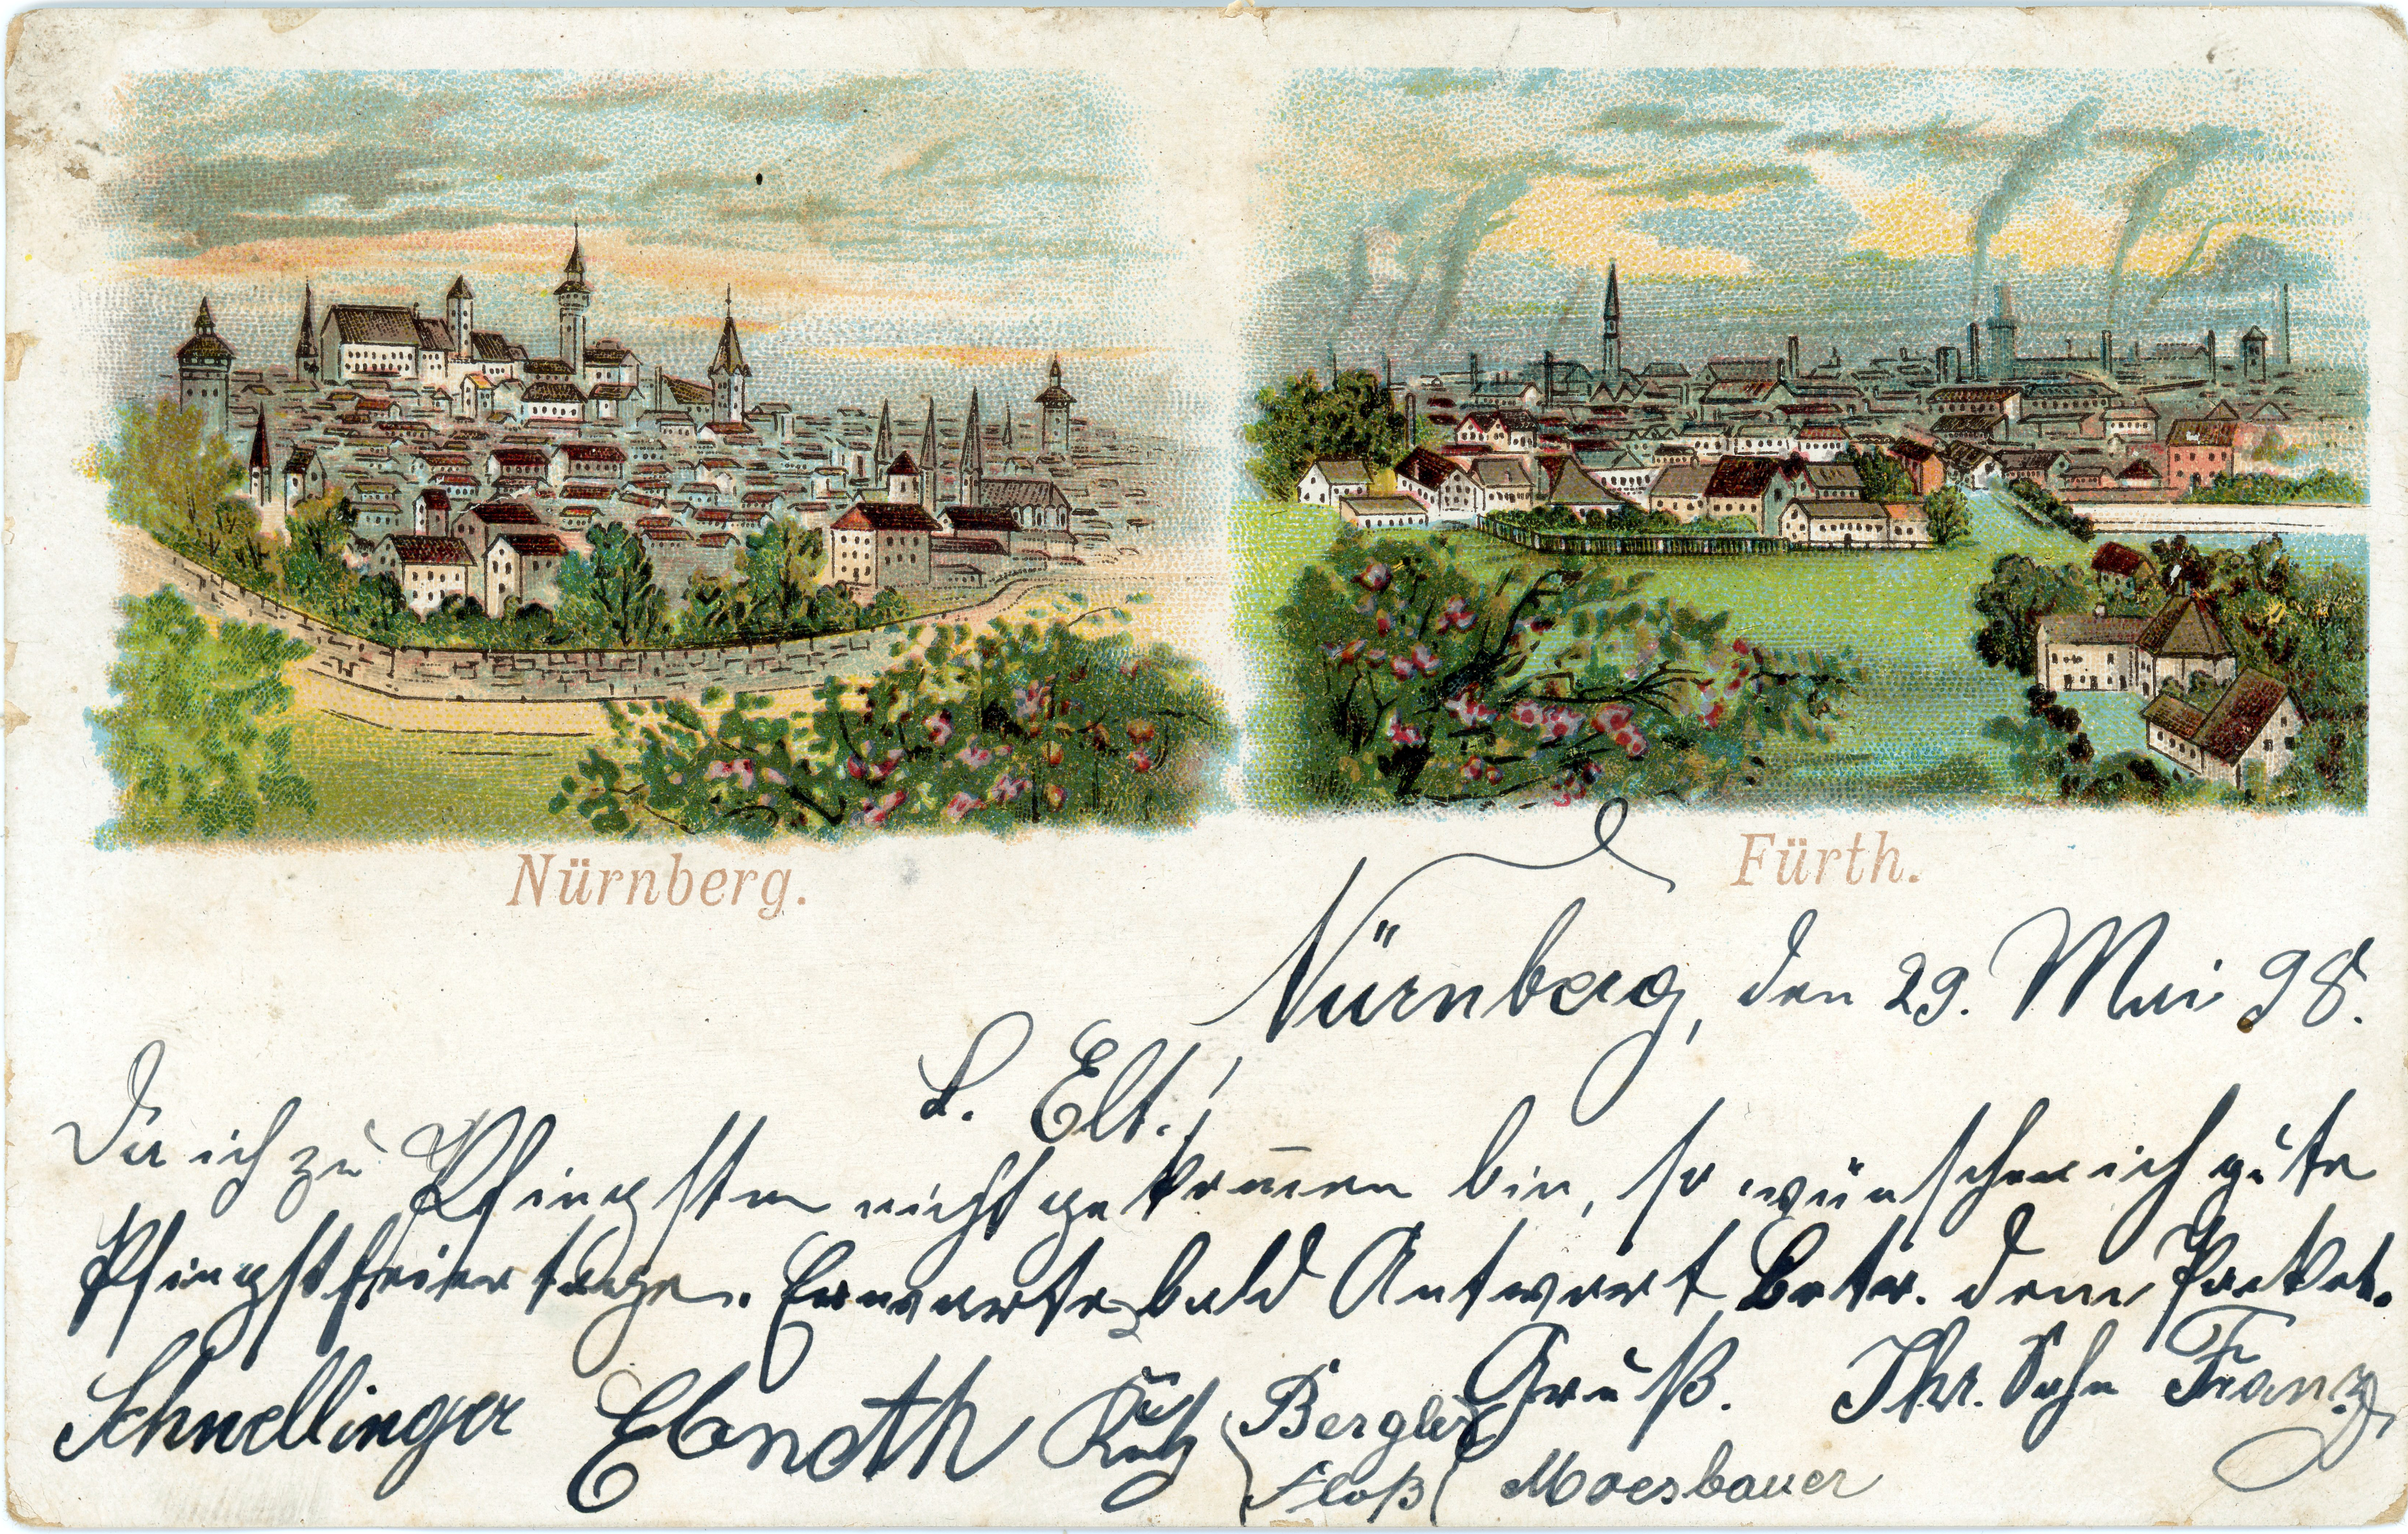 Nürnberg.
Fürth.
Nürnberg, den 29. Mai 98.
L. Elt.!
Da ich zu Pfingsten nicht gekom̅en bin, so wünsche ich gute
Pfingstfeiertage. Erwarte bald Antwort betr. dem Packet.
Gruß. Ihr. Sohn Franz
Schnellinger Ebnoth Bergler
Floß Moesbauer